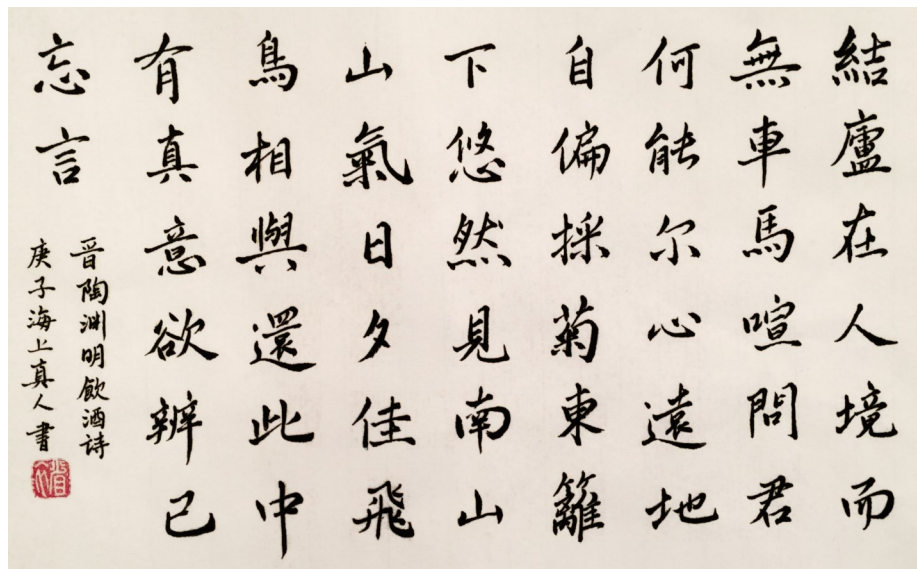 結廬在人境而
無車馬喧問君
何能尔心遠地
自偏採菊東籬
下悠然見南山
山氣日夕佳飛
鳥相與還此中
有真意欲辨已
忘言
晉陶淵明飲酒詩
庚子海上真人書